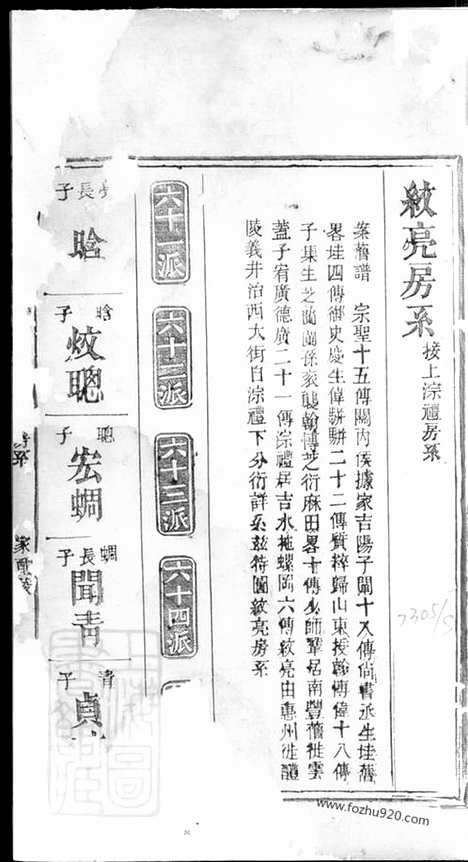 紋亮房系 接上淙禮房系
案舊譜 宗聖十五傳關內侯據家吉陽子闡十入傳尙書丞生珪舊
畧珪四傳御史
生偉騈騈二十二傳質粹歸山東授翰博偉十八傳
子集生芝蘭蘭孫衮襲翰博芝衍麻田畧十傳少師鞏居南豐舊徙雲
蓋子宥廣德廣二十一傳淙禮居吉水拖螺岡六傳紋亮由惠州徙醴
陵義井治西大街自淙禮下分衍詳系茲特圖紋亮房系
六十一派
六十二派
六十三派
六十四派
長子 晗
晗子 炆聰
聰子 宏蜩
蜩長子 聞青
清子 貞
7305/5
www.fozhu920.com